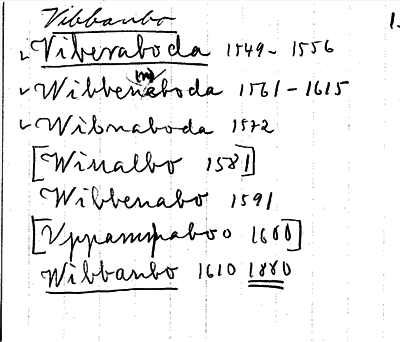 Vibbanbo
1.
Viberaboda 1549-1556
Wibbenaboda 1561-1615
Wibnaboda 1572
[Winalbo 1581]
Wibbenabo 1591
[Vppampaboo 1600]
Wibbanbo 1610 1880